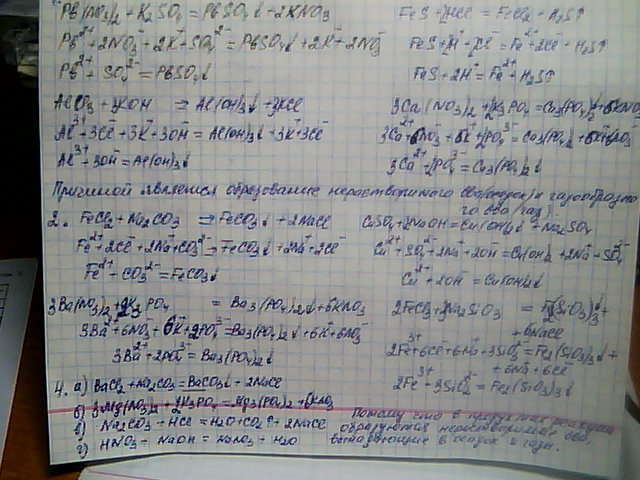 Pb(NO₃)₂ + K₂SO₄ = PbSO₄↓ + 2KNO₃
Pb²⁺ + 2NO₃⁻ + 2K⁺ + SO₄²⁻ = PbSO₄↓ + 2K⁺ + 2NO₃⁻
Pb²⁺ + SO₄²⁻ = PbSO₄↓
FeS + 2HCl = FeCl₂ + H₂S↑
FeS + 2H⁺ + 2Cl⁻ = Fe²⁺ + 2Cl⁻ + H₂S↑
FeS + 2H⁺ = Fe²⁺ + H₂S↑
AlCl₃ + 3KOH = Al(OH)₃↓ + 3KCl
Al³⁺ + 3Cl⁻ + 3K⁺ + 3OH⁻ = Al(OH)₃↓ + 3K⁺ + 3Cl⁻
Al³⁺ + 3OH⁻ = Al(OH)₃↓
3Ca(NO₃)₂ + 2K₃PO₄ = Ca₃(PO₄)₂↓ + 6KNO₃
3Ca²⁺ + 6NO₃⁻ + 6K⁺ + 2PO₄³⁻ = Ca₃(PO₄)₂↓ + 6K⁺ + 6NO₃⁻
3Ca²⁺ + 2PO₄³⁻ = Ca₃(PO₄)₂↓
Причиной является образование нерастворимого св-ва(осадок) и газообразно
го в-ва (газ).
2. FeCl₂ + Na₂CO₃ = FeCO₃↓ + 2NaCl
Fe²⁺ + 2Cl⁻ + 2Na⁺ + CO₃²⁻ = FeCO₃↓ + 2Na⁺ + 2Cl⁻
Fe²⁺ + CO₃²⁻ = FeCO₃↓
CuSO₄ + 2NaOH = Cu(OH)₂↓ + Na₂SO₄
Cu²⁺ + SO₄²⁻ + 2Na⁺ + 2OH⁻ = Cu(OH)₂↓ + 2Na⁺ + SO₄²⁻
Cu²⁺ + 2OH⁻ = Cu(OH)₂↓
3Ba(NO₃)₂ + 2K₃PO₄ = Ba₃(PO₄)₂↓ + 6KNO₃
3Ba²⁺ + 6NO₃⁻ + 6K⁺ + 2PO₄³⁻ = Ba₃(PO₄)₂↓ + 6K⁺ + 6NO₃⁻
3Ba²⁺ + 2PO₄³⁻ = Ba₃(PO₄)₂↓
2FeCl₃ + 3Na₂SiO₃ = Fe₂(SiO₃)₃↓ +
+ 6NaCl
2Fe³⁺ + 6Cl⁻ + 6Na⁺ + 3SiO₃²⁻ = Fe₂(SiO₃)₃↓ +
+ 6Na⁺ + 6Cl⁻
2Fe³⁺ + 3SiO₃²⁻ = Fe₂(SiO₃)₃↓
4. а) BaCl₂ + Na₂CO₃ = BaCO₃↓ + 2NaCl
б) 3Mg(NO₃)₂ + 2K₃PO₄ = Mg₃(PO₄)₂ + 6KNO₃
в) Na₂CO₃ + HCl = H₂O + CO₂↑ + 2NaCl
г) HNO₃ + NaOH = NaNO₃ + H₂O
Потому что в продуктах реакции
образуются нерастворимые в-ва,
выпадающие в осадок и газы.